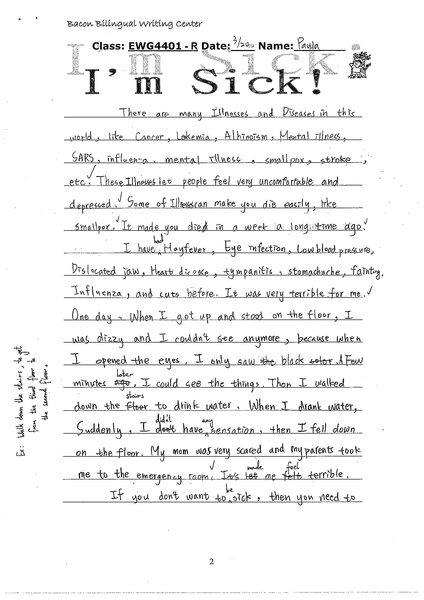 Bacon Bilingual Writing Center
Class: EWG4401 - R Date: 3/20 Name: Paula
I'm Sick!
There are many Illnesses and Diseases in this
world, like Cancer, Lukemia, Albinoism, Mental illness,
SARS, influenza, mental illness, smallpox, stroke,
etc. These Illnesses let people feel very uncomfortable and
depressed. Some of Illness can make you die easily, like
smallpox. It made you died in a week a long time ago.
had
I have Hayfever, Eye infection, Low blood pressure,
Dislocated jaw, Heart disease, tympanitis, stomachache, fainting,
Influenza, and cuts before. It was very terrible for me.
One day. When I got up and stood on the floor, I
was dizzy and I couldn't see anymore, because when
I opened the eyes, I only saw the black color. A few
later
minutes ago, I could see the things. Then I walked
stairs
down the floor to drink water. When I drank water,
didn't any
Suddenly, I don't have sensation, then I fell down
on the floor. My mom was very scared and my parents took
made feel
me to the emergency room. It's let me felt terrible.
be
If you don't want to sick, then you need to
Ex: Walk down the stairs, to get
from the third floor to
the second floor.
2